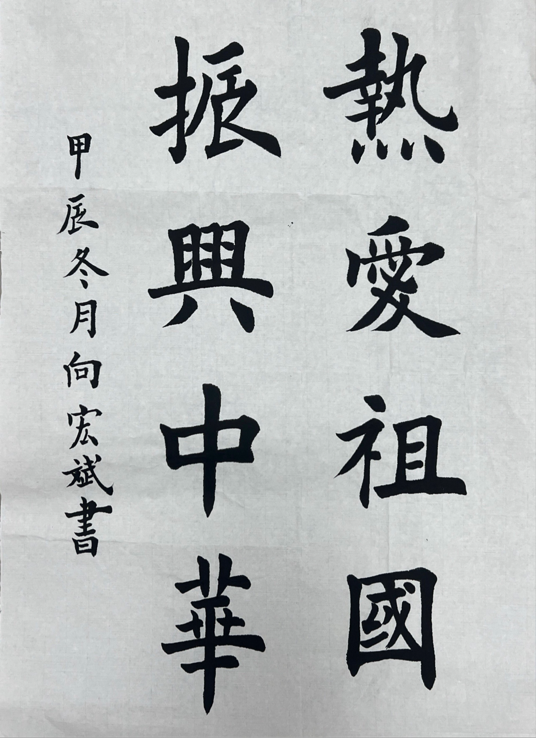 熱愛祖國
振興中華
甲辰冬月向宏斌書